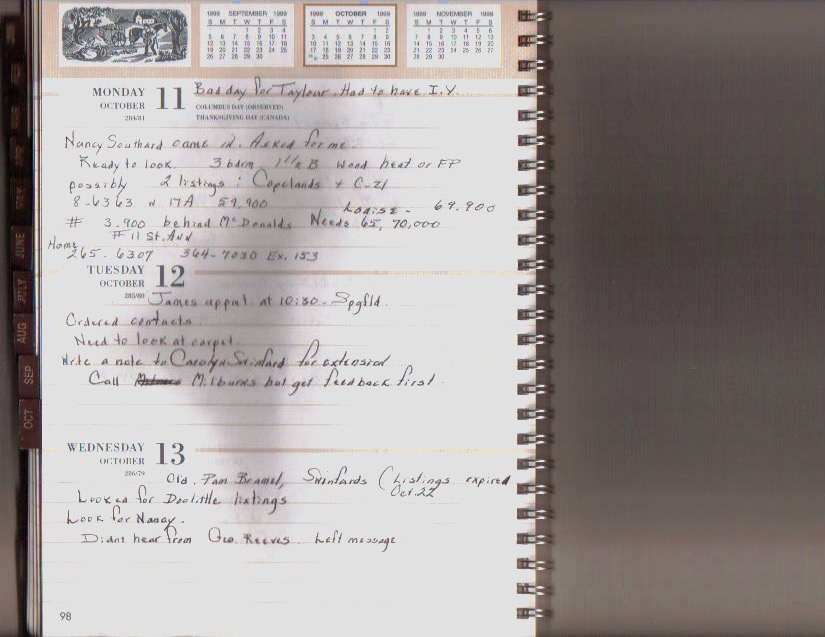 1999 SEPTEMBER 1999
S M T W T F S
1 2 3 4
5 6 7 8 9 10 11
12 13 14 15 16 17 18
19 20 21 22 23 24 25
26 27 28 29 30
1999 OCTOBER 1999
S M T W T F S
1 2
3 4 5 6 7 8 9
10 11 12 13 14 15 16
17 18 19 20 21 22 23
25 26 27 28 29 30
1999 NOVEMBER 1999
S M T W T F S
1 2 3 4 5 6
7 8 9 10 11 12 13
14 15 16 17 18 19 20
21 22 23 24 25 26 27
28 29 30
MONDAY 11 Bad day for Taylour. Had to have I.V.
OCTOBER COLUMBUS DAY (OBSERVED)
284/81 THANKSGIVING DAY (CANADA)
Nancy Southard came in. Asked for me.
Ready to look. 3 bdrm 1 1/2 B Wood heat or FP
possibly 2 listings: Copelands + C-21
8-6363 N 17A 59,900 Louise - 69,900
# 3,900 behind McDonalds Needs 65, 70,000
# 11 St. Ann
Home
265-6307 364-7030 Ex. 153
TUESDAY 12
OCTOBER
285/80 James appmt. at 10:30 - Spgfld.
Ordered contacts.
Need to look at carpet.
Write a note to Carolyn Swinfard for extension
Call Milburns but get feedback first.
WEDNESDAY 13
OCTOBER
286/79 Old. Pam Bramel, Swinfards (Listings expired
Oct. 22
Looked for Doolittle listings
Look for Nancy.
Didnt hear from Geo. Reeves. Left message
98
MAY
JUNE
JULY
AUG
SEP
OCT